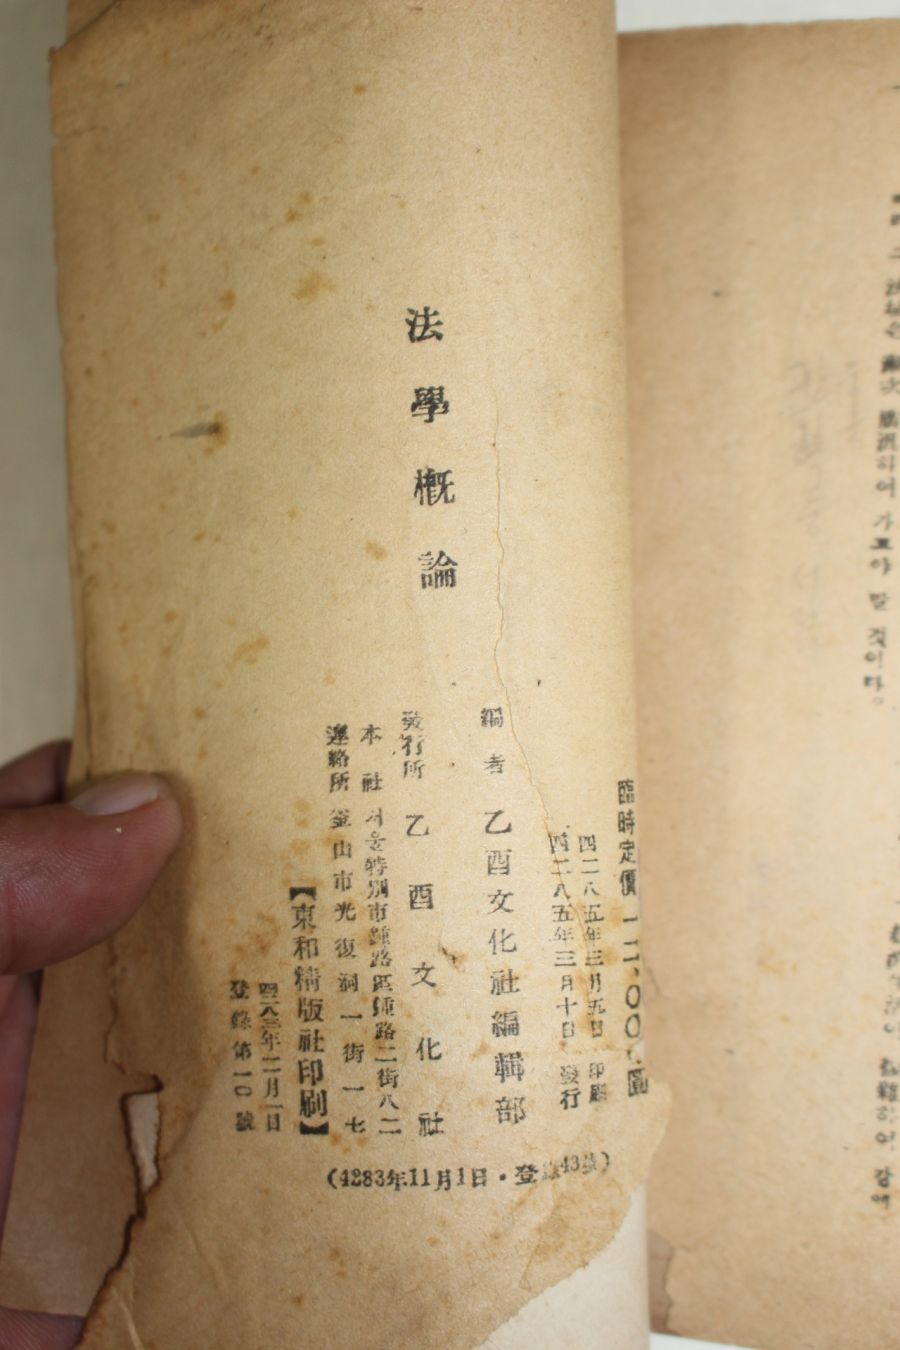 法學槪論
臨時定價 一二、〇〇〇圓
四二八五年三月五日 印刷
四二八五年三月十日 發行
編者 乙酉文化社編輯部
發行所 乙酉文化社
本社 서울特別市鍾路區鍾路二街八二
連絡所 釜山市光復洞一街一七
【東和精版社印刷】
年二月一日
登錄第一〇號
(4283年11月1日・登錄43號)
하여 가고야 말 것이다。